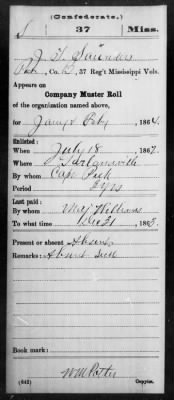 (Confederate.)
S 37 Miss.
J. T. Saunders
Pvt, Co. B, 37 Reg't Mississippi Vols.
Appears on
Company Muster Roll
of the organization named above,
for Jany & Feby, 1864.
Enlisted:
When July 18, 186
Where
By whom Capt
Period 2 yrs
Last paid:
By whom Maj Williams
To what time Dec 31, 1863.
Present or absent Absent
Remarks: Absent Sick
Book mark:
(642) Copyist.